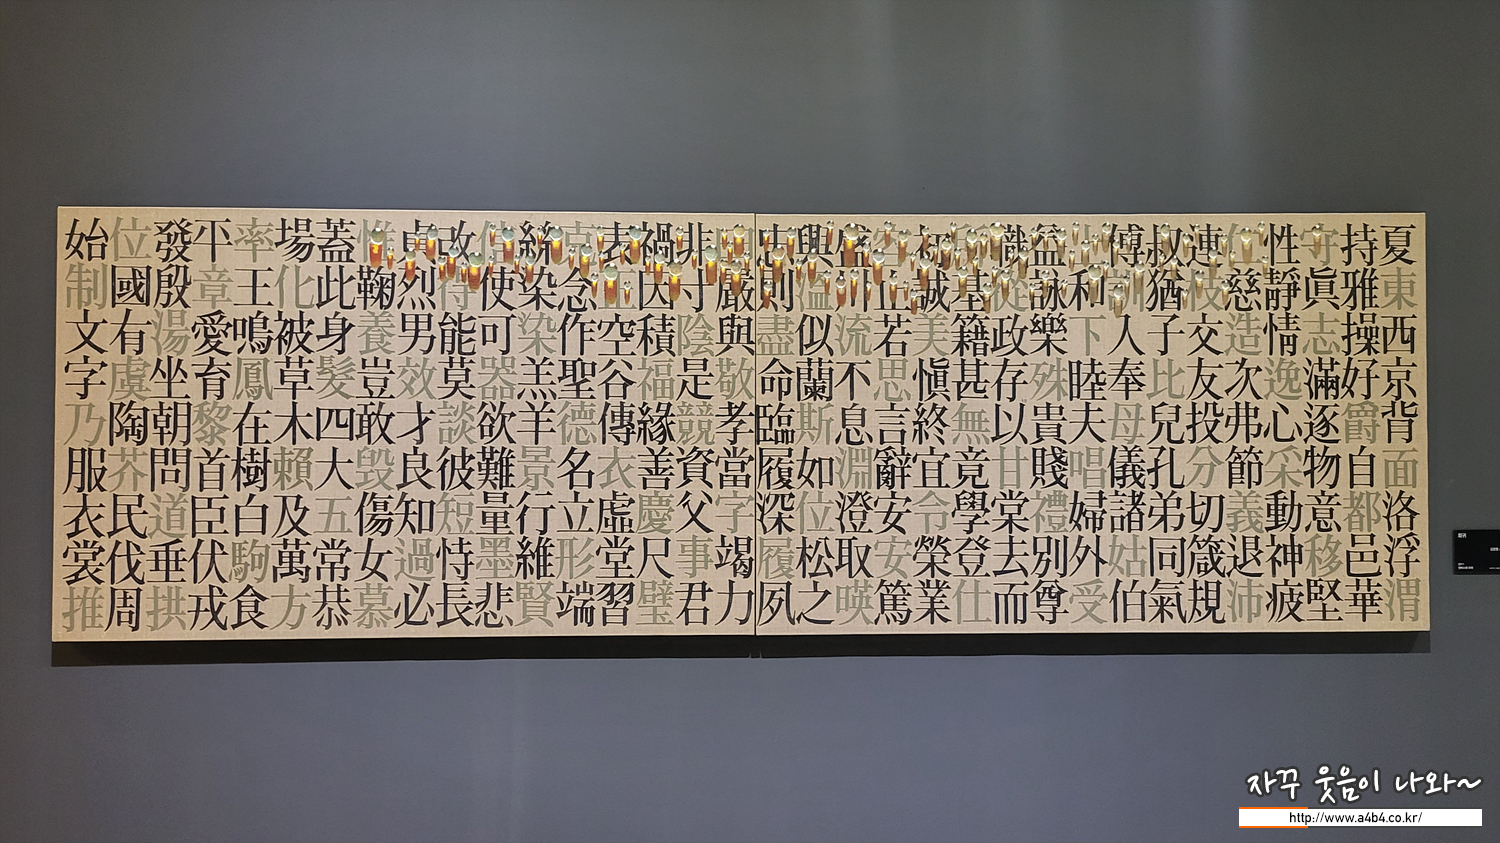 始制文字乃服衣裳推
位國有虞陶芥民伐周
發殷湯坐朝問道垂拱
平章愛育黎首臣伏戎
率王鳴鳳在樹白駒食
場化被草木賴及萬方
蓋此身髮四大五常恭
惟鞠養豈敢毀傷女慕
貞烈男效才良知過必
改得能莫談彼短恃長
信使可器欲難量墨悲
絲染染羔羊景行維賢
克念作聖德名立形端
表正空谷傳衣虛堂習
禍因積福緣善慶尺璧
非寸陰是競資父事君
嚴與敬孝當字竭力
忠則盡命臨履深履夙
興溫似蘭斯如位松之
盛川流不息淵澄取暎
容止若思言辭安安篤
初誠美愼終宜令榮業
所基籍甚無竟學登仕
職從政存以甘棠去而
益詠樂殊貴賤禮別尊
和下睦夫唱婦外受
傅訓人奉母儀諸姑伯
叔猶子比兒孔弟同氣
連枝交友投分切箴規
仁慈造次弗節義退沛
性靜情逸心采動神疲
守眞志滿逐物意移堅
持雅操好爵自都邑華
夏東西京背面洛浮渭
자꾸 웃음이 나와~
http://www.a4b4.co.kr/